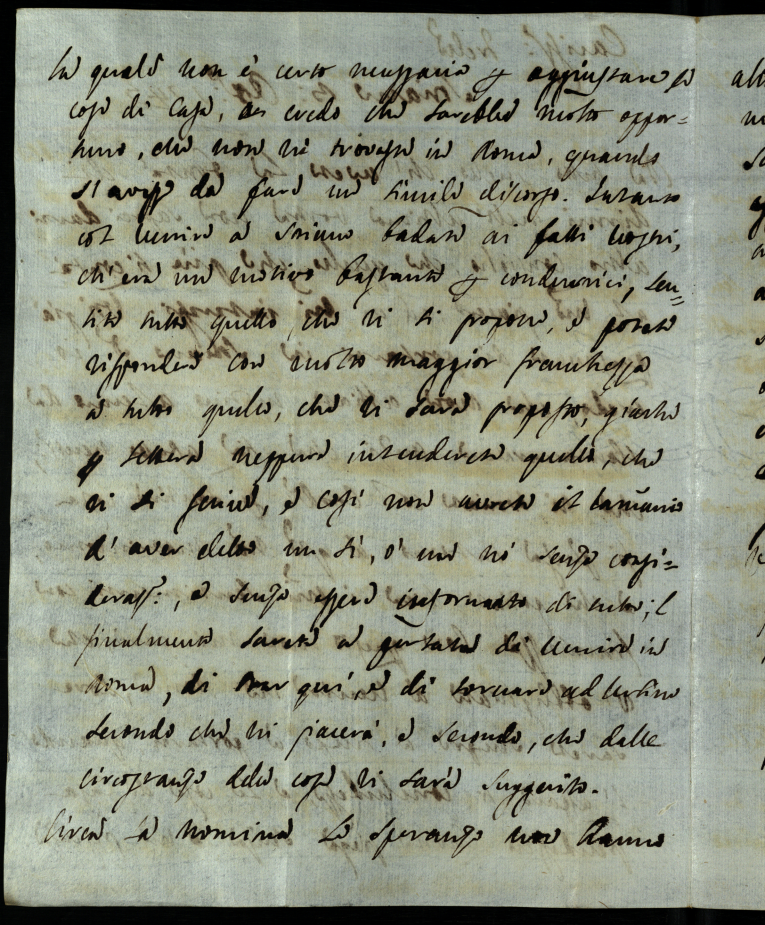 la quale non è certo necessaria p aggiustare le
cose di Casa, credo che sarebbe molto oppor=
tuno, che non vi trovaste in Roma, quando
si avesse da fare un simile discorso. Intanto
col venire a badate ai fatti vostri,
ch'era un motivo bastante p condurvici, sen=
tite tutto quello, che vi si propone, e potete
rispondere con molto maggior franchezza
a tutto quello, che vi sarà proposto, giacché
p lettera neppure intenderete quello, che
vi si scrive, e così non avrete il
d'aver detto un sì, o un nò senza consi=
deraz:, e senza essere informato di tutto; e
finalmente sarete a portata di venire in
Roma, di star quì, e di tornare ad Urbino
secondo che vi piacerà, e secondo, che dalle
circostanze delle cose vi sarà suggerito.
Circa la nomina le speranze non hanno
al